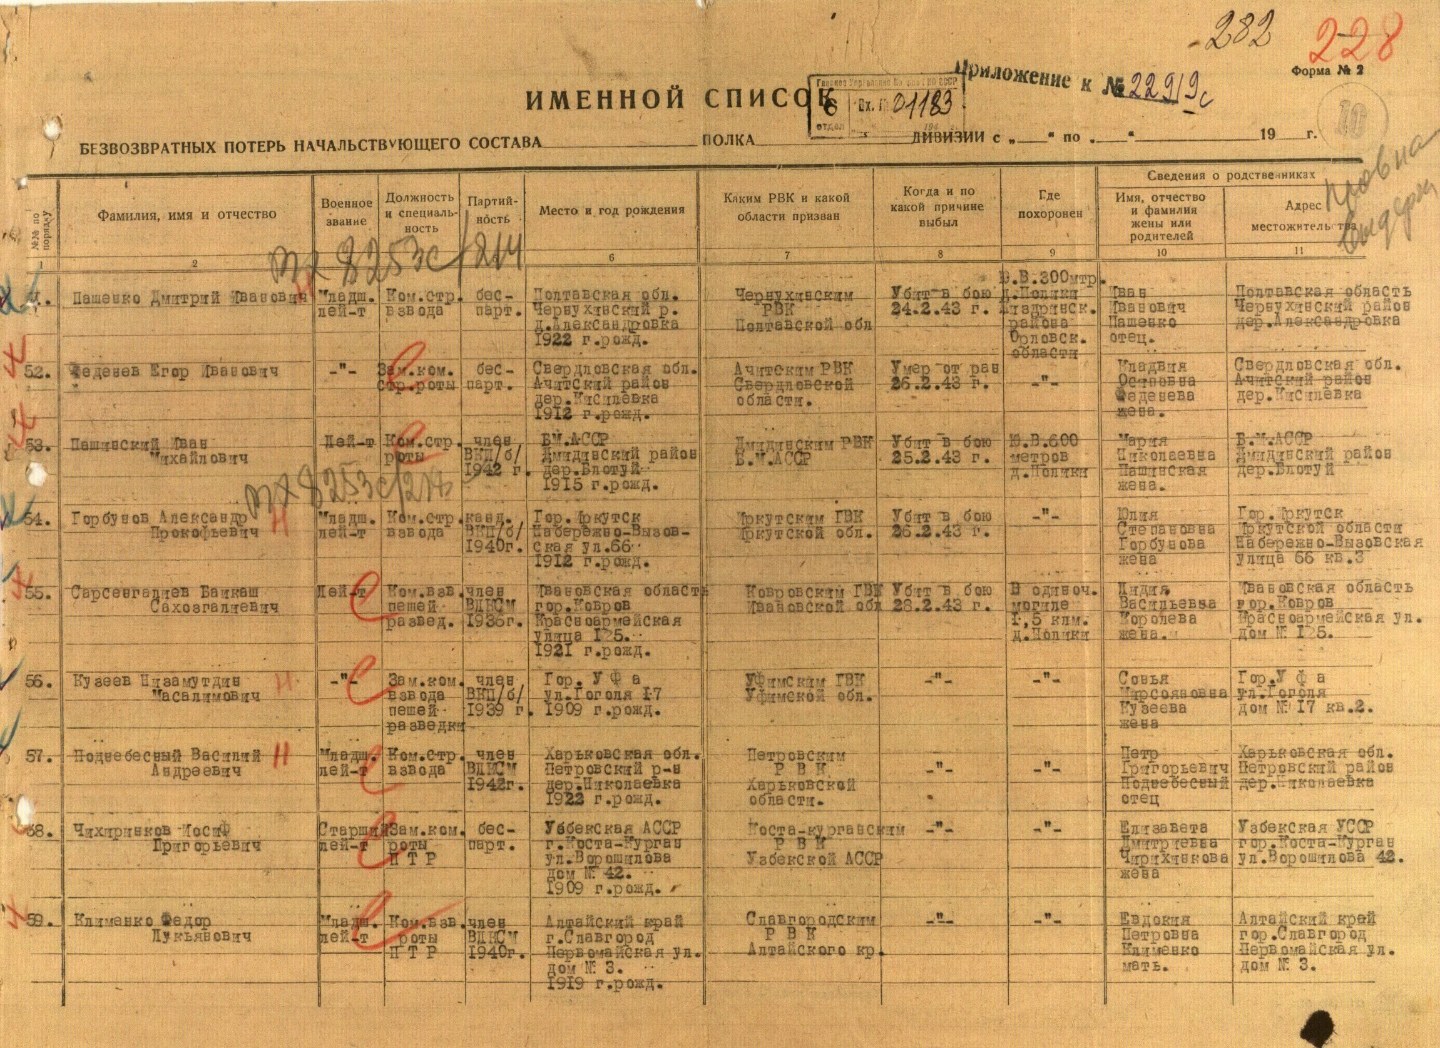 282
228
Форма № 2
Приложение к № 22919с
ИМЕННОЙ СПИСОК
Вх. 01183
отдел
БЕЗВОЗВРАТНЫХ ПОТЕРЬ НАЧАЛЬСТВУЮЩЕГО СОСТАВА ПОЛКА ДИВИЗИИ с „ “ по „ “ 19 г.
10
№№ по порядку
Фамилия, имя и отчество
Военное звание
Должность и специальность
Партийность
Место и год рождения
Каким РВК и какой области призван
Когда и по какой причине выбыл
Где похоронен
Сведения о родственниках
Имя, отчество и фамилия жены или родителей
Адрес местожительства
2 6 7 8 9 10 11
8253с/214
Пашенко Дмитрий Иванович
Младш. лей-т
Ком.стр. взвода
бес-парт.
Полтавская обл.
Чернухинский р.
д.Александровка
1922 г.рожд.
Чернухинским
РВК
Полтавской обл
Убит в бою
24.2.43 г.
Ю.В.300мтр.
д.Полики
района
Орловск.
области
Иван
Иванович
Пашенко
отец.
Полтавская область
Чернухинский район
дер.Александровка
52. Феденев Егор Иванович
-"-
Зам.ком.
стр.роты
бес-
парт.
Свердловская обл.
Ачитский район
дер.Кисилевка
1912 г.рожд.
Ачитским РВК
Свердловской
области.
Умер от ран
26.2.43 г.
-"-
Клавдия
Осиповна
Феденева
жена.
Свердловская обл.
Ачитский район
дер.Кисилевка
53. Пашинский Иван
Михайлович
Лей-т
Ком.стр.
роты
член
ВКП/б/
1942 г.
Б.М.АССР
район
1915 г.рожд.
РВК
Б.М.АССР
Убит в бою
25.2.43 г.
Ю.В.600
метров
д.Полики
Мария
Николаевна
Пашинская
жена.
Б.М.АССР
район
8253с/218
54. Горбунов Александр
Прокофьевич
Н
Младш.
лей-т
Ком.стр.
взвода
канд.
ВКП/б/
1940г.
Гор.Иркутск
Набережно-Вызов-
ская ул.66
1912 г.рожд.
Иркутским ГВК
Иркутской обл.
Убит в бою
26.2.43 г.
-"-
Юлия
Степановна
Горбунова
жена
Гор.Иркутск
Иркутской области
Набережно-Вызовская
улица 66 кв.3
55. Сарсенгалиев Баикаш
Сахозгалиевич
Лей-т
Ком.взв.
пешей
развед.
член
ВЛКСМ
1936г.
Ивановская область
гор.Ковров
Красноармейская
улица 125.
1921 г.рожд.
Ковровским ГВК
Ивановской обл
Убит в бою
28.2.43 г.
В одиноч.
могиле
1,5 клм.
д.Полики
Лидия
Васильевна
Королева
жена.
Ивановская область
гор.Ковров
Красноармейская ул.
дом № 125.
56. Кузеев Низамутдин
Масалимович
Н
-"-
Зам.ком.
взвода
пешей
разведки
член
ВКП/б/
1939 г.
Гор. У ф а
ул.Гоголя 17
1909 г.рожд.
Уфимским ГВК
Уфимской обл.
-"-
-"-
Софья
Мирсояповна
Кузеева
жена
Гор.У ф а
ул.Гоголя
дом № 17 кв.2.
57. Поднебесный Василий
Андреевич
Н
Младш.
лей-т
Ком.стр.
взвода
член
ВЛКСМ
1942г.
Харьковская обл.
Петровский р-н
дер.Николаевка
1922 г.рожд.
Петровским
Р В К
Харьковской
области.
-"-
-"-
Петр
Григорьевич
Поднебесный
отец
Харьковская обл.
Петровский район
дер.Николаевка
58. Чихиринков Иосиф
Григорьевич
Старший
лей-т
Зам.ком.
роты
П Т Р
бес-
парт.
Узбекская АССР
г.Коста-Курган
ул.Ворошилова
дом № 42.
1909 г.рожд.
Коста-курганским
Р В К
Узбекской АССР
-"-
-"-
Елизавета
Дмитриевна
Чирихинкова
жена
Узбекская УССР
гор.Коста-Курган
ул.Ворошилова 42.
59. Клименко Федор
Лукьянович
Младш.
лей-т
Ком.взв.
роты
П Т Р
член
ВЛКСМ
1940г.
Алтайский край
г.Славгород
Первомайская ул.
дом № 3.
1919 г.рожд.
Славгородским
Р В К
Алтайского кр.
-"-
-"-
Евдокия
Петровна
Клименко
мать.
Алтайский край
гор.Славгород
Первомайская ул.
дом № 3.